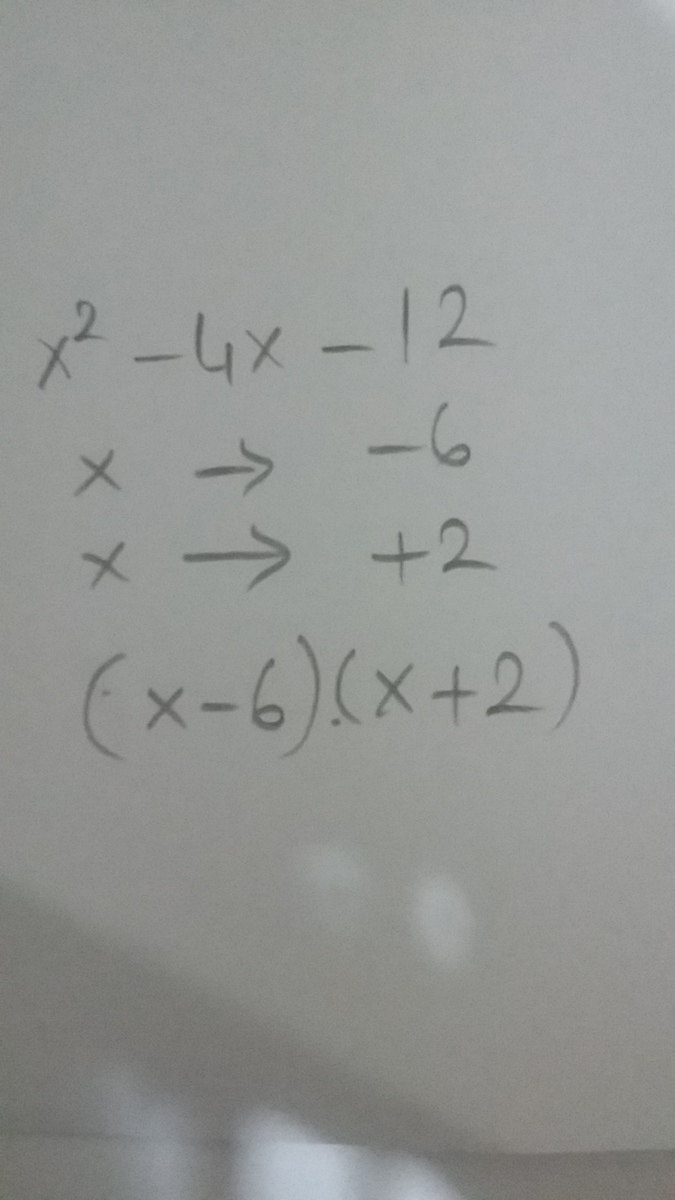 x² - 4x - 12
x → -6
x → +2
(x-6).(x+2)